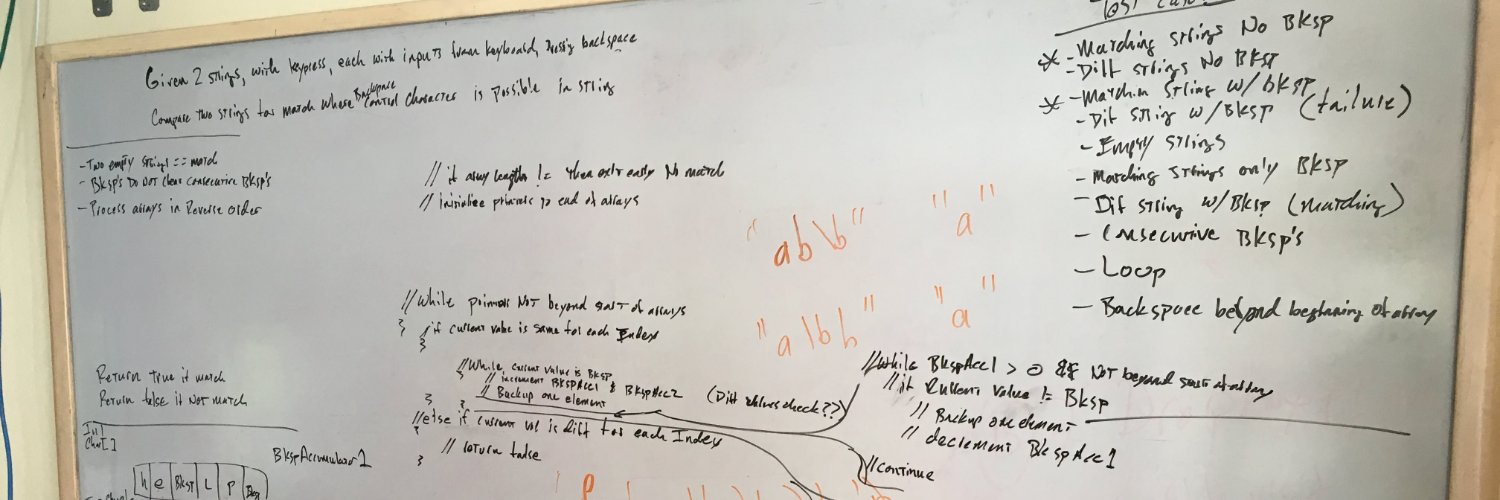 Given 2 strings, with keypress, each with inputs from keyboard, using backspace
Compare two strings for match where Backspace control character is possible in string
- Two empty strings == match
- Bksp's Do Not clear consecutive Bksp's
- Process arrays in Reverse order
Return True if match
Return false if Not match
Int
Char[]
BkspAccumulator1
h e Bksp L P Bksp
// if array lengths != then exit early No match
// initialize pointers to end of arrays
// While pointers Not beyond start of arrays
{ if current value is same for each Index
{
// While current value is BKSP
// increment BKSPAcc1 & BKSPAcc2
// Backup one element
} }
(Diff values check??)
// else if current val is diff for each Index
{
// return false
}
"ab\b" "a"
"a\bb" "a"
Test Cases
* - Matching strings No Bksp
- Diff strings No Bksp
* - Matchin String w/ bksp
- Dif string w/BKSP (failure)
- Empty strings
- Matching strings only BKSP
- Dif string w/BKSP (matching)
- Consecutive Bksp's
- Loop
- Backspace beyond beginning of array
// While BkspAcc1 > 0 && Not beyond start of array
// if current value != Bksp
// Backup one element
// decrement BkspAcc1
// Continue